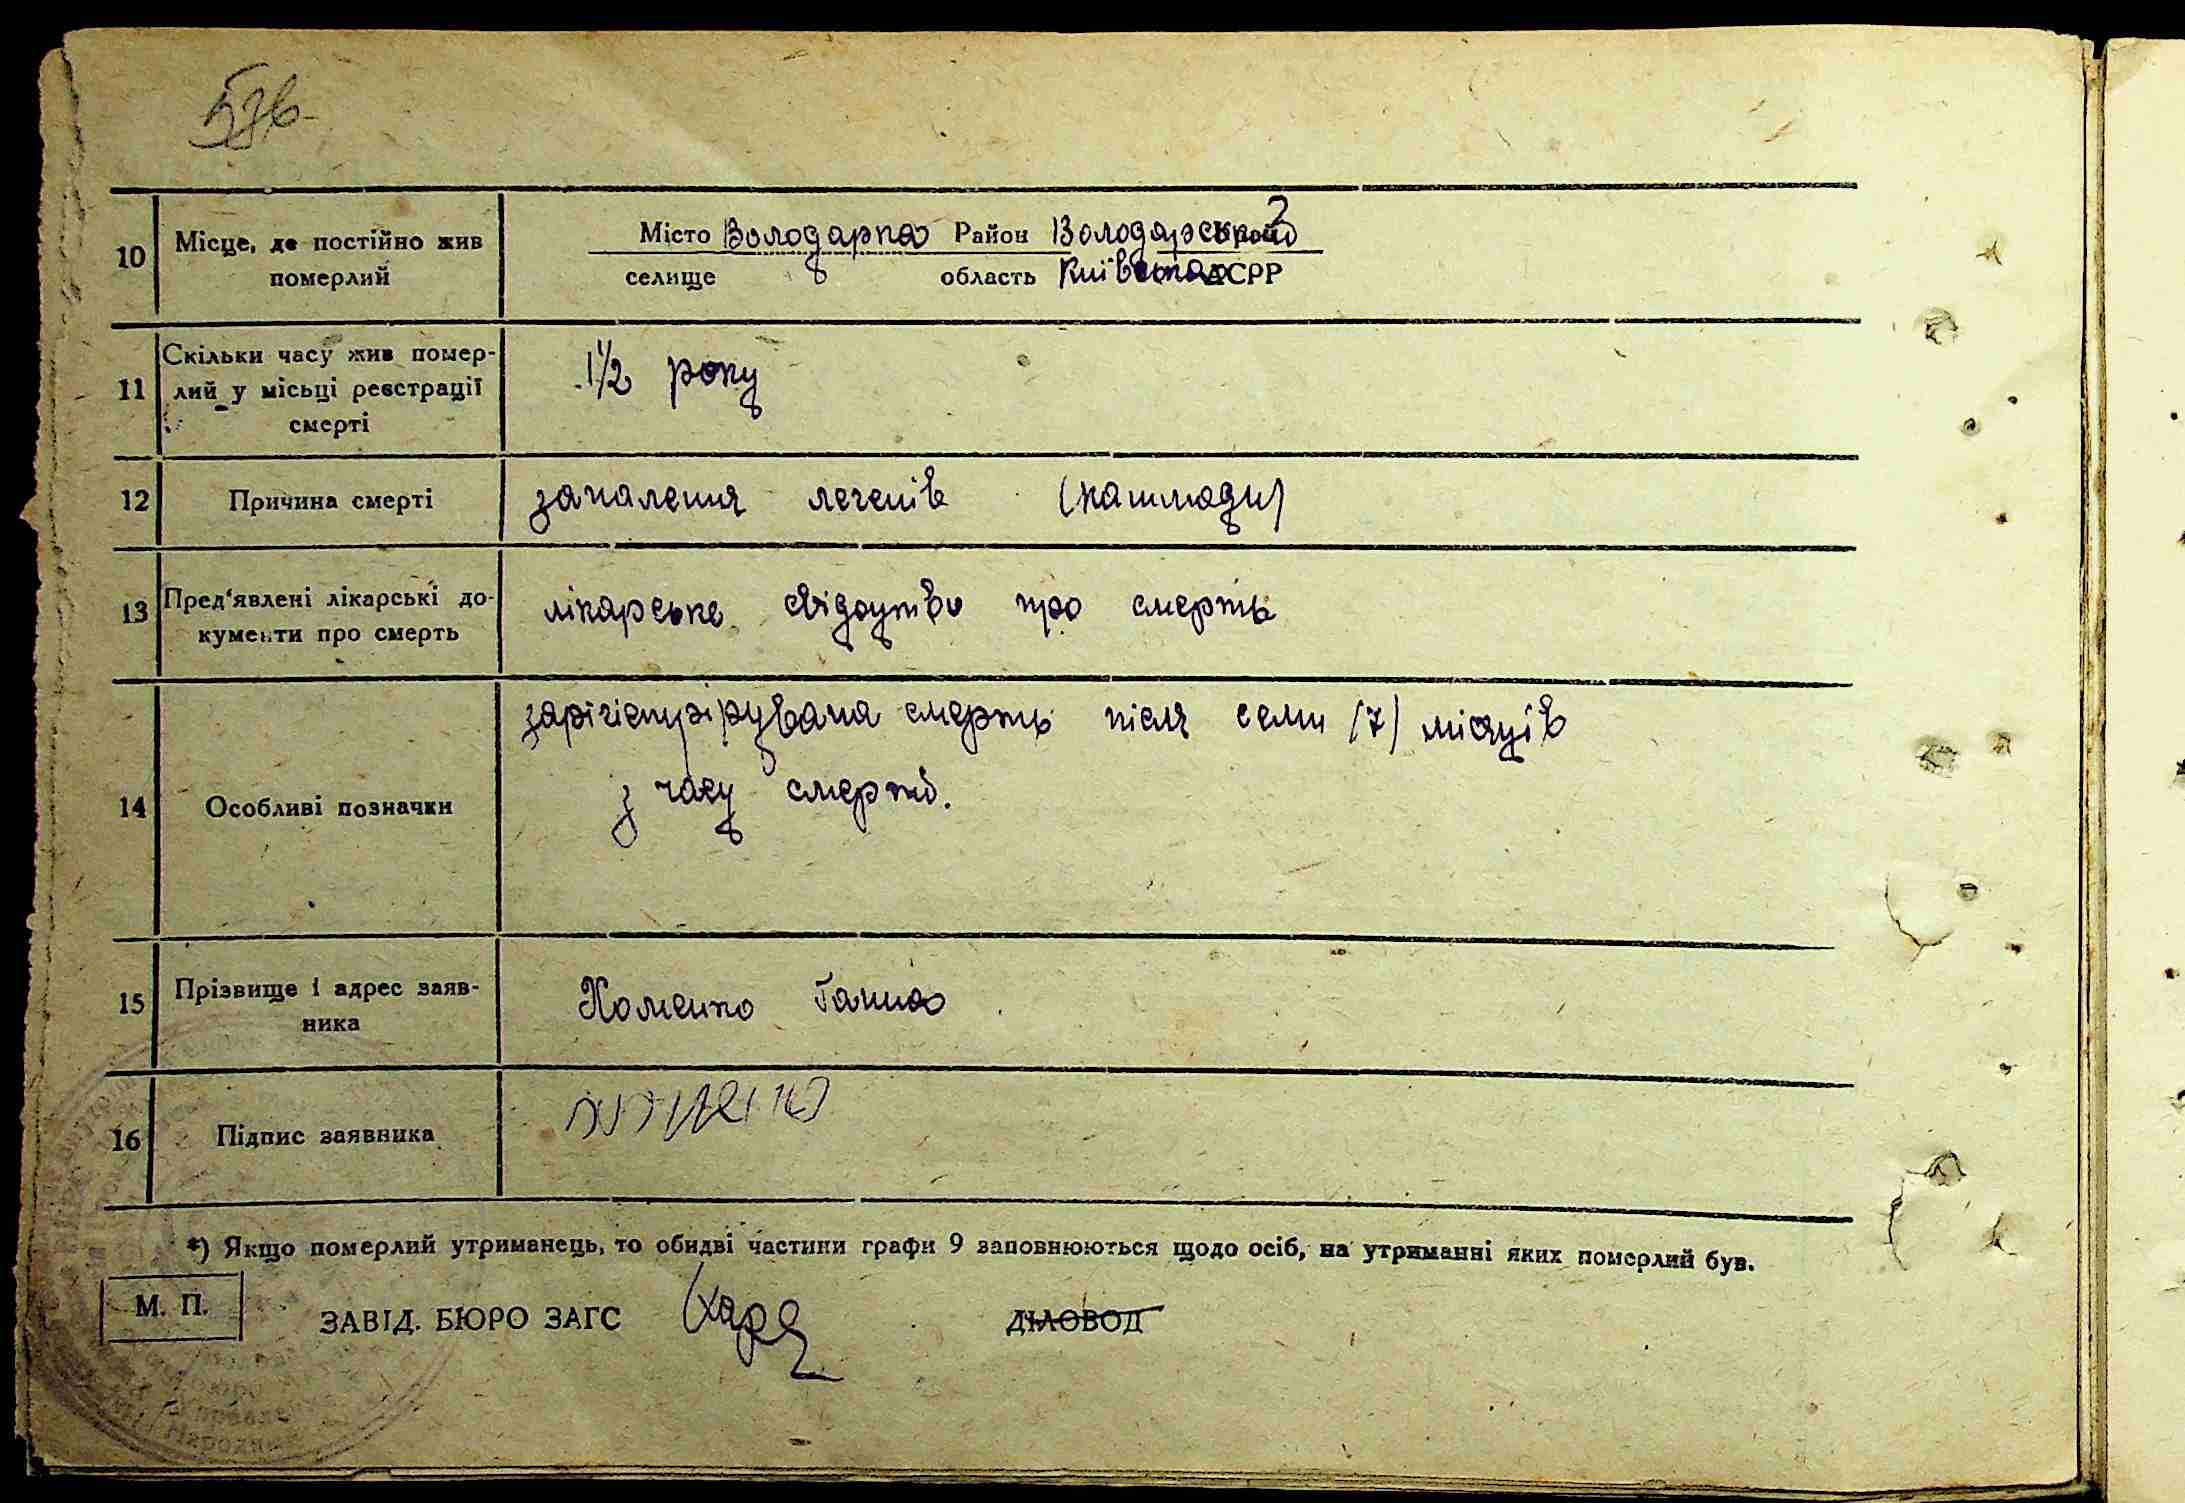 57в
10 Місце, де постійно жив
померлий
Місто Володарка Район Володарський
селище область Київська АСРР
11 Скільки часу жив помер-
лий у місьці реєстрації
смерті
1½ року
12 Причина смерті
запалення легенів (кашлюди)
13 Пред'явлені лікарські до-
кументи про смерть
лікарське свідоцтво про смерть
14 Особливі позначки
зарігістрірувана смерть після семи (7) місяців
з часу смерті.
15 Прізвище і адрес заяв-
ника
Хоменко Ганна
16 Підпис заявника
*) Якщо померлий утриманець, то обидві частини графи 9 заповнюються щодо осіб, на утриманні яких померлий був.
М. П.
ЗАВІД. БЮРО ЗАГС ДІЛОВОД